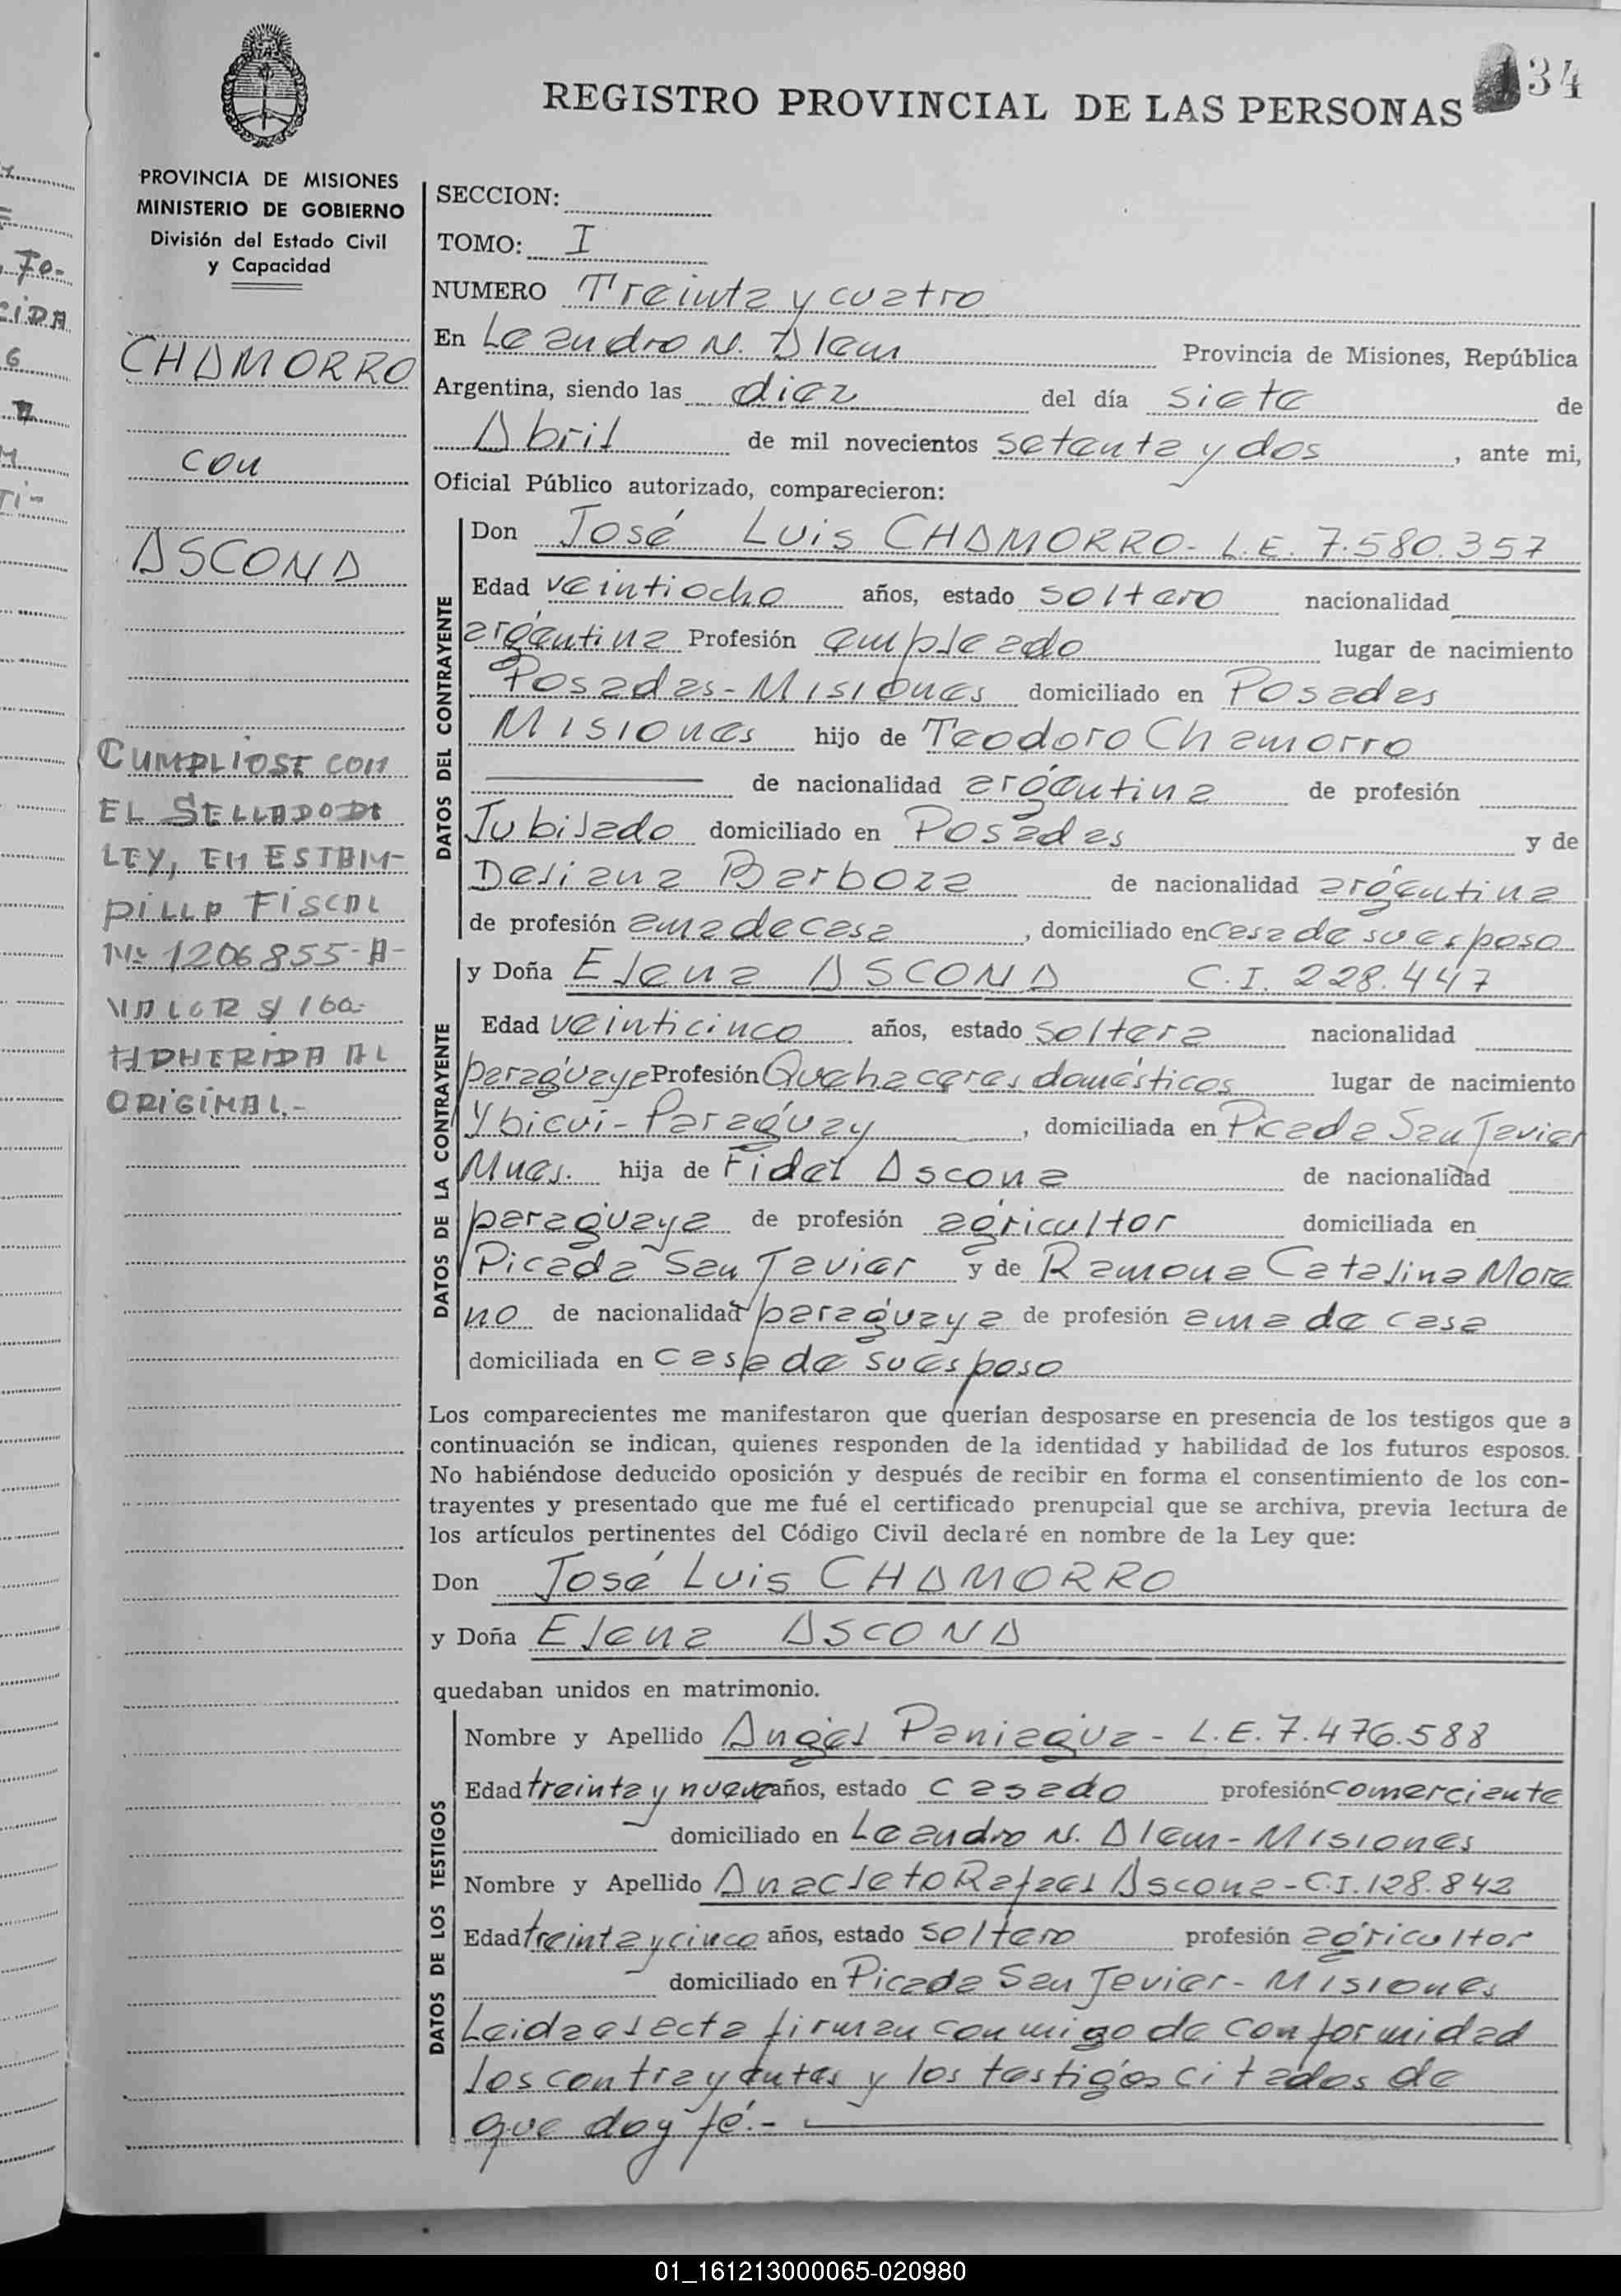 34
REGISTRO PROVINCIAL DE LAS PERSONAS
PROVINCIA DE MISIONES
MINISTERIO DE GOBIERNO
División del Estado Civil
y Capacidad
CHAMORRO
con
ASCONA
CUMPLIOSE CON
EL SELLADO DE
LEY, EN ESTAM-
PILLA FISCAL
Nº 1206855-A-
VALOR $/ 160-
ADHERIDA AL
ORIGINAL.-
SECCION:
TOMO: I
NUMERO Treinta y cuatro
En Leandro N. Alem Provincia de Misiones, República
Argentina, siendo las diez del día siete de
Abril de mil novecientos setenta y dos, ante mi,
Oficial Público autorizado, comparecieron:
DATOS DEL CONTRAYENTE
Don José Luis CHAMORRO- L.E. 7.580.357
Edad veintiocho años, estado soltero nacionalidad
argentina Profesión empleado lugar de nacimiento
Posadas-Misiones domiciliado en Posadas
Misiones hijo de Teodoro Chamorro
de nacionalidad argentina de profesión
Jubilado domiciliado en Posadas y de
Deliana Barboza de nacionalidad argentina
de profesión ama de casa, domiciliado en casa de su esposo
DATOS DE LA CONTRAYENTE
y Doña Elena ASCONA C.I. 228.447
Edad veinticinco años, estado soltera nacionalidad
paraguaya Profesión Quehaceres domésticos lugar de nacimiento
Ybicui-Paraguay, domiciliada en Picada San Javier
Mnes. hija de Fidel Ascona de nacionalidad
paraguaya de profesión agricultor domiciliada en
Picada San Javier y de Ramona Catalina More
no de nacionalidad paraguaya de profesión ama de casa
domiciliada en casa de su esposo
Los comparecientes me manifestaron que querían desposarse en presencia de los testigos que a
continuación se indican, quienes responden de la identidad y habilidad de los futuros esposos.
No habiéndose deducido oposición y después de recibir en forma el consentimiento de los con-
trayentes y presentado que me fué el certificado prenupcial que se archiva, previa lectura de
los artículos pertinentes del Código Civil declaré en nombre de la Ley que:
Don José Luis CHAMORRO
y Doña Elena ASCONA
quedaban unidos en matrimonio.
DATOS DE LOS TESTIGOS
Nombre y Apellido Angel Paniagua - L.E. 7.476.588
Edad treinta y nueve años, estado casado profesión comerciante
domiciliado en Leandro N. Alem-Misiones
Nombre y Apellido Anacleto Rafael Ascona-C.I. 128.842
Edad treinta y cinco años, estado soltero profesión agricultor
domiciliado en Picada San Javier-Misiones
Leida el acta firman conmigo de conformidad
los contrayentes y los testigos citados de
que doy fé.-
01_161213000065-020980